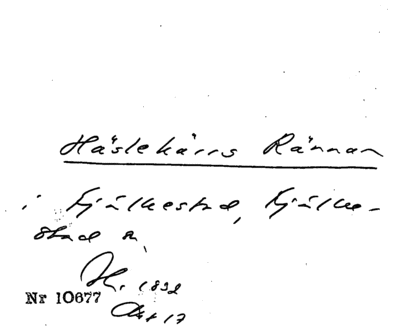 Hästekärrs Rännan
i Fjälkestad, Fjälke-
stad sn,
Hr. 1832
Akt 17
Nr 10677